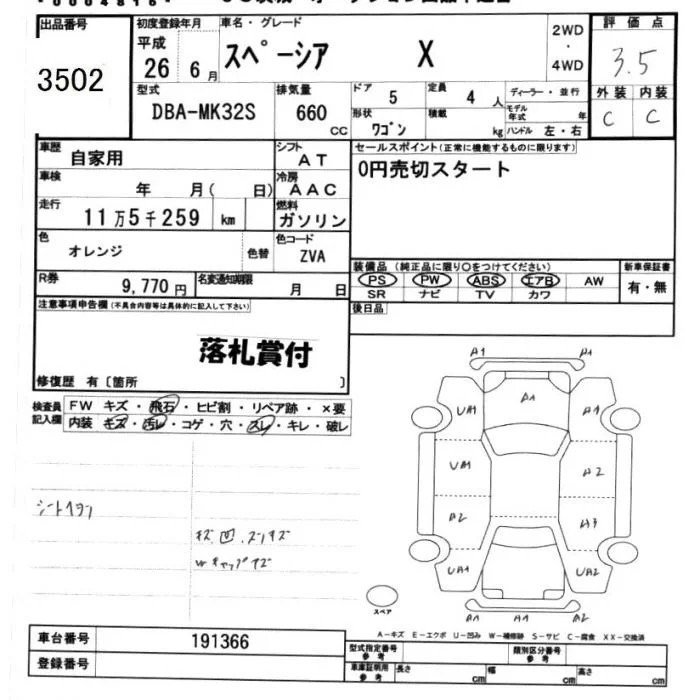 出品番号
3502
初度登録年月
平成
26 6月
車名・グレード
スペーシア X
2WD
・
4WD
評価点
3.5
外装 内装
C C
型式
DBA-MK32S
排気量
660
CC
ドア 5
定員 4 人
ディーラー・並行
形状 ワゴン
積載 kg
モデル年式 年
ハンドル 左・右
車歴 自家用
シフト AT
セールスポイント(正常に機能するものに限ります)
0円売切スタート
車検 年 月( 日)
冷房 AAC
走行 11万5千259 km
燃料 ガソリン
色 オレンジ 色替
色コード ZVA
R券 9,770円
名変通知期限 月 日
装備品(純正品に限り○をつけてください)
PS PW ABS エアB AW
SR ナビ TV カワ
新車保証書
有・無
後日品
注意事項申告欄(不具合内容等は具体的に記入して下さい)
落札賞付
修復歴 有〔箇所 〕
検査員記入欄
FW キズ・飛石・ヒビ割・リペア跡・×要
内装 キズ・汚レ・コゲ・穴・スレ・キレ・破レ
キズ 凹
A1 A1
UA1 A1 A1
UA1 A2
A2 A3
UA1 UA2
A1 A1 A2
スペア
A-キズ E-エクボ U-凹み W-補修跡 S-サビ C-腐食 XX-交換済
車台番号 191366
登録番号
型式指定番号 参考
類別区分番号 参考
車庫証明用 参考
長さ cm
幅 cm
高さ cm